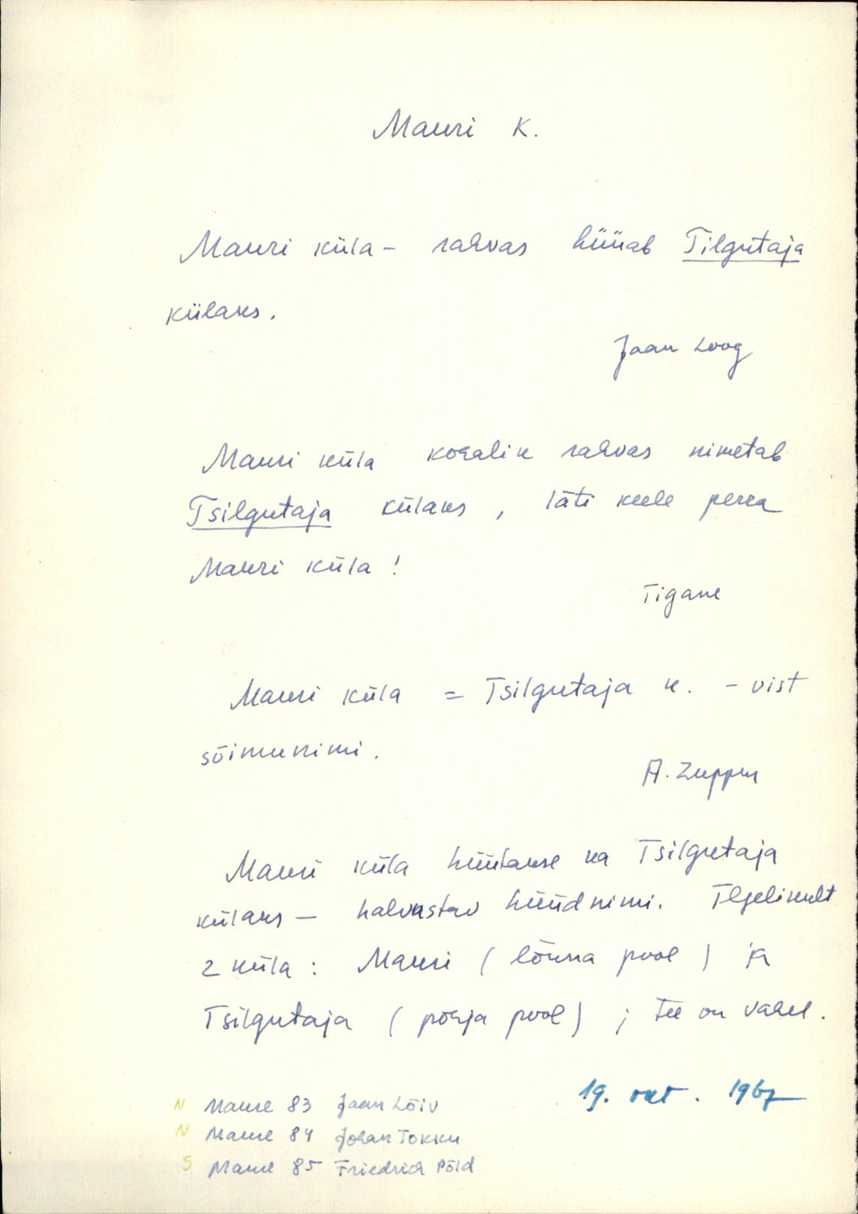 Mauri k.
Mauri küla – rahvas hüüab Tilgutaja
külaks.
Jaan Loog
Mauri küla kohalik rahvas nimetab
Tsilgutaja külaks, läti keele perra
Mauri küla!
Tigane
Mauri küla = Tsilgutaja k. – vist
sõimunimi.
A. Zuppur
Mauri küla hüütakse ka Tsilgutaja
külaks – halvustav hüüdnimi. Tegelikult
2 küla: Mauri (lõuna pool) ja
Tsilgutaja (põhja pool); tee on vahel.
19. okt. 1967
N Maure 83 Jaan Lõiv
N Maure 84 Johan Tokku
S Maure 85 Friedrich Põld